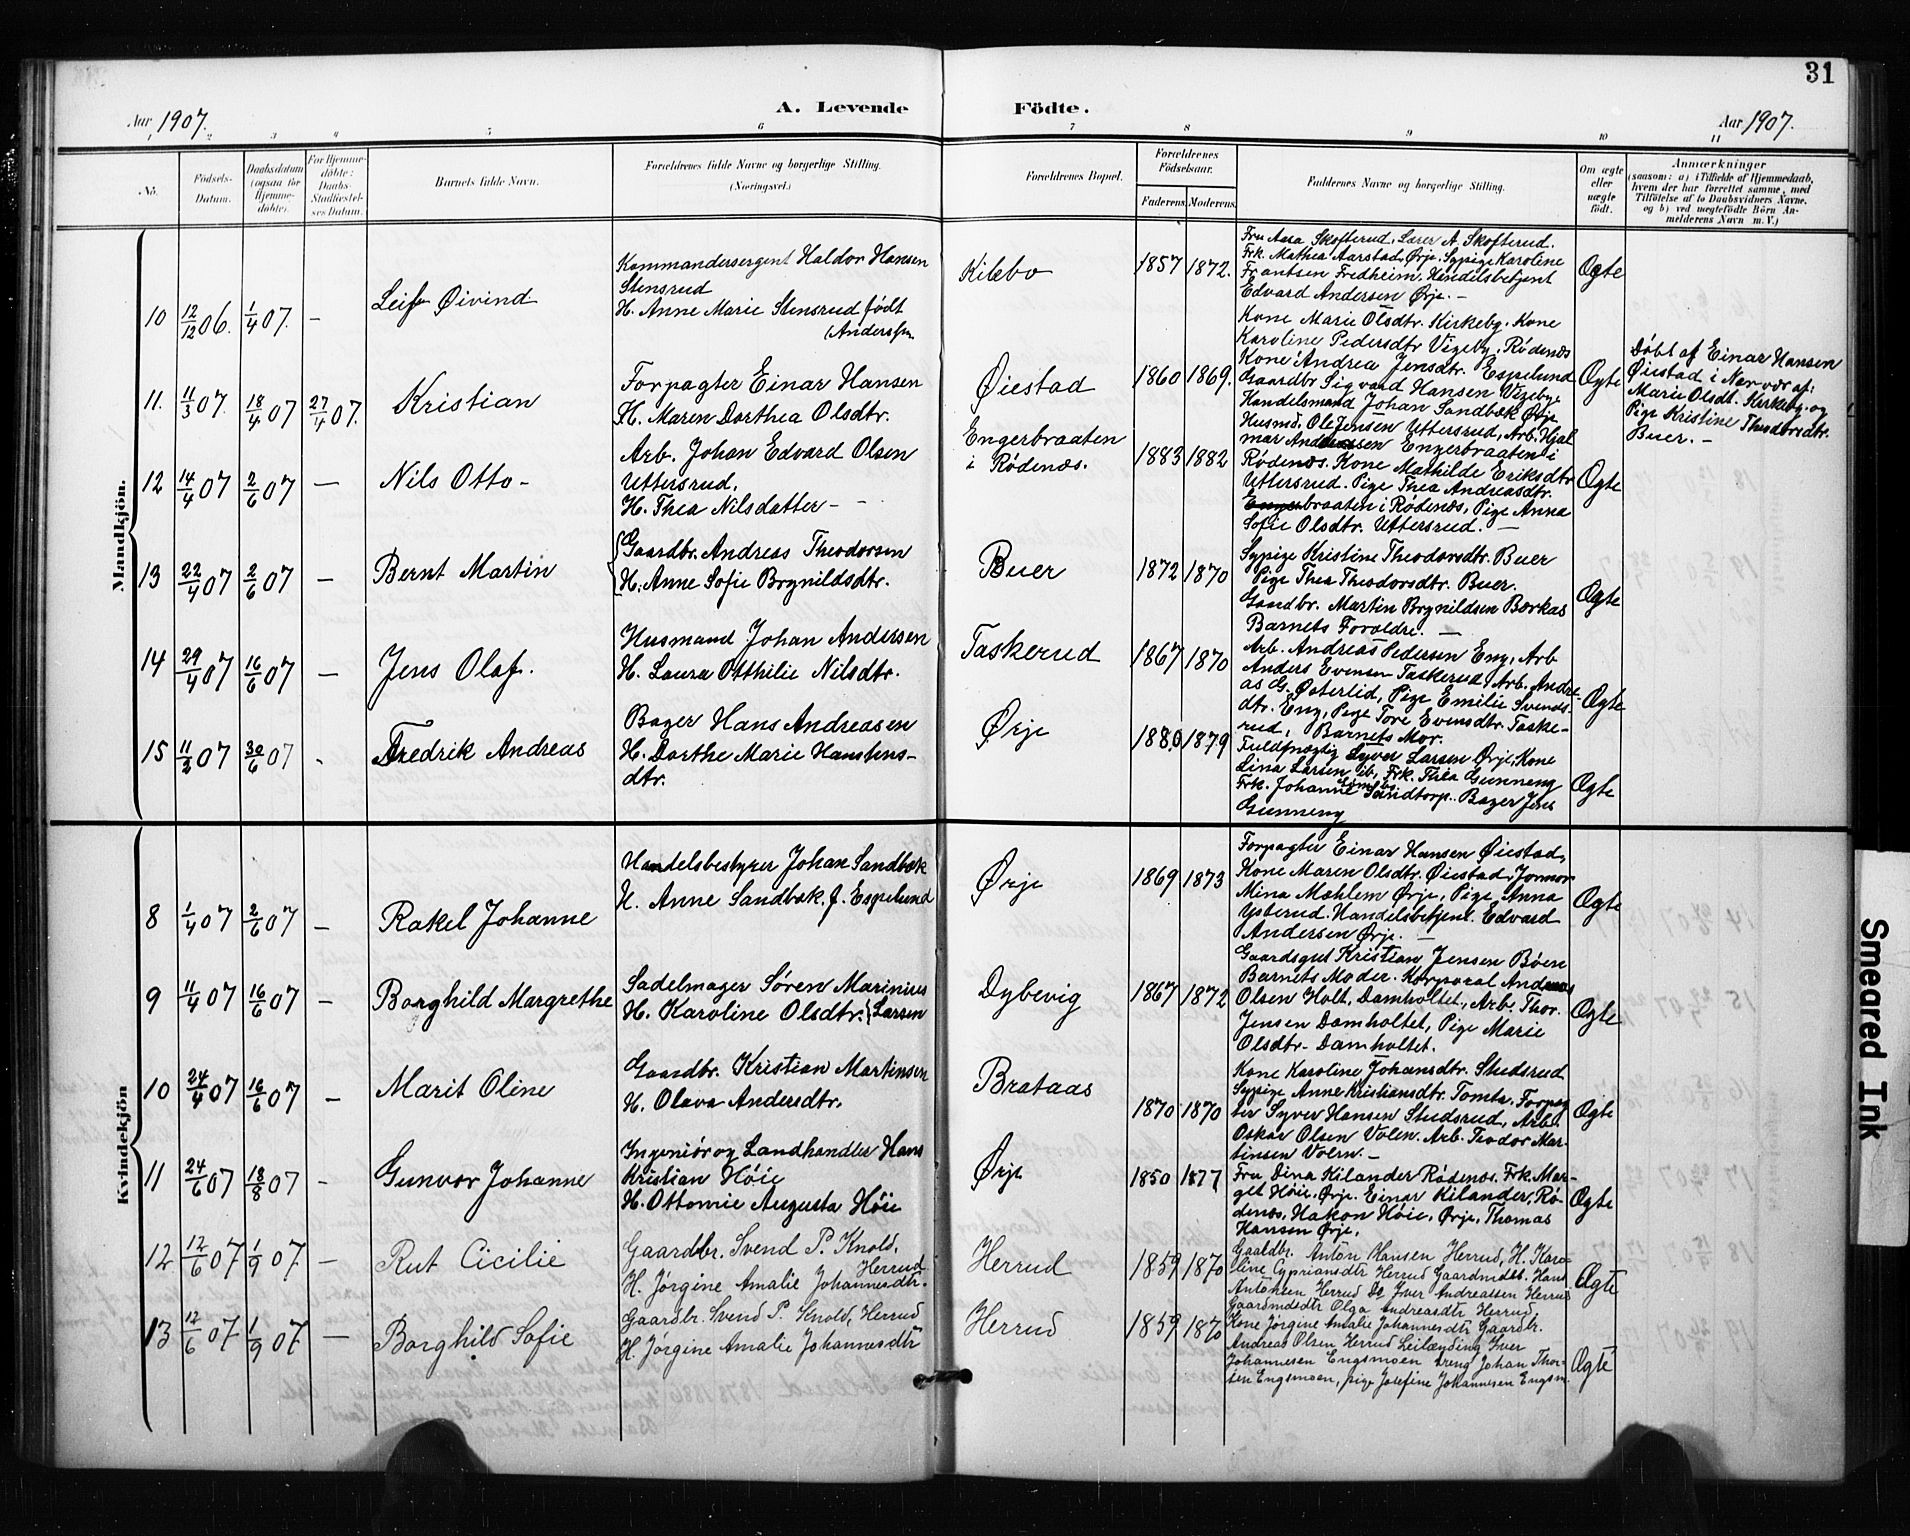 31
Aar 1907.
A. Levende
Födte.
Aar 1907.
1 2 3 4 5 6 7 8 9 10 11
No.
Födsels-
Datum.
Daabsdatum
(ogsaa for
Hjemme-
döbte).
For Hjemme-
döbte:
Daabs-
Stadfæstel-
ses Datum.
Barnets fulde Navn.
Forældrenes fulde Navne og borgerlige Stilling.
(Næringsvei.)
Forældrenes Bopæl.
Forældrenes
Födselsaar.
Faderens.
Moderens.
Faddernes Navne og borgerlige Stilling.
Om ægte
eller
uægte
födt.
Anmærkninger
(saasom: a) i Tilfælde af Hjemmedaab,
hvem der har forrettet samme, med
Tilföielse af to Daabsvidners Navne,
og b) ved uægtefödte Börn An-
melderens Navn m. V.)
Mandkjön.
10
12/12 06.
1/4 07.
–
Leif Øivind
Kommandersergent Haldor Hansen
Stensrud
H. Anne Marie Stensrud født
(Andersen
Kilebo
1857
1872.
Fru Aasa Skofterud, Lærer A. Skofterud.
Frk. Mathea Aarstad, Ørje. Sypige Karoline
Frantsen Fredheim, Handelsbetjent
Edvard Andersen Ørje. –
Ægte
11.
11/3 07.
18/4 07
27/4 07.
Kristian
Forpagter Einar Hansen
H. Maren Dorthea Olsdtr.
Øiestad
1860
1869.
Kone Marie Olsdtr. Kirkeby. Kone
Karoline Pedersdtr Vizeby, Rødenæs
Kone Andrea Jensdtr. Espelund
Gaardbr Sigvard Hansen Vizeby
Handelsmand Johan Sandbæk Ørje
Ægte
Døbt af Einar Hansen
Øiestad i Nærvær af:
Marie Olsdt. Kirkeby og
Pige Kristine Theodorsdtr.
Buer. –
12
14/4 07
2/6 07
–
Nils Otto –
Arb. Johan Edvard Olsen
Uttersrud.
H. Thea Nilsdatter –
Engerbraaten
i Rødenæs.
1883
1882
Husmd. Ole Jensen Uttersrud, Arb. Hjal
mar Andreassen Engerbraaten i
Rødenæs. Kone Mathilde Eriksdtr
Uttersrud. Pige Thea Andreasdtr.
Engerbraaten i Rødenæs, Pige Anna
Sofie Olsdtr. Uttersrud. –
Ægte
13
22/4 07
2/6 07
–
Bernt Martin
Gaardbr. Andreas Theodorsen
H. Anne Sofie Brynildsdtr.
Buer
1872
1870
Sypige Kristine Theodorsdtr. Buer
Pige Thea Theodorsdtr. Buer.
Gaardbr. Martin Brynildsen Bærkas
Barnets Forældre. –
Ægte
14
29/4 07
16/6 07
–
Jens Olaf.
Husmand Johan Andersen
H. Laura Otthilie Nilsdtr.
Taskerud
1867
1870
Arb. Andreas Pedersen Eng, Arb
Anders Evensen Taskerud, Arb. Andre
as G. Østerlid, Pige Emilie Svends-
dtr. Eng, Pige Tore Evensdtr. Taske-
rud, Barnets Mor.
Ægte
15
11/2 07
30/6 07
Fredrik Andreas
Bager Hans Andreasen
H. Dorthe Marie Hanstens-
dtr.
Ørje
1880
1879
Fuldmægtig Syver Larsen Ørje, Kone
Lina Larsen ib., Frk. Thea Gunneng
Frk. Johanne Sandtorp. Bager Jens
Gunneng
Ægte
Kvindekjön
8
1/4 07
2/6 07
–
Rakel Johanne
Handelsbestyrer Johan Sandbæk
H. Anne Sandbæk f. Espelund
Ørje
1869
1873
Forpagter Einar Hansen Øiestad,
Kone Maren Olsdtr. Øiestad, Jormor
Mina Mahlem Ørje, Pige Anna
Ysterud. Handelsbetjent Edvard
Andersen Ørje. –
Ægte
9
11/4 07
16/6 07
–
Borghild Margrethe
Sadelmager Søren Marinius
H. Karoline Olsdtr. Larsen
Dybevig
1867
1872
Gaardsgut Kristian Jensen Bøen
Barnets Moder. Korporal Andreas
Olsen Holt, Damholtet, Arb. Thor.
Jensen Damholtet, Pige Marie
Olsdtr. Damholtet.
Ægte
10
24/4 07
16/6 07
–
Marit Oline
Gaardbr. Kristian Martinsen
H. Olava Andersdtr.
Brataas
1870
1870
Kone Karoline Johansdtr. Studsrud
Sypige Anne Kristiansdtr. Tomta. Forpag
ter Syver Hansen Studsrud, Arb.
Oskar Olsen Volen. Arb. Teodor Mar-
tinsen Voern. –
Ægte
11
24/6 07
18/8 07
–
Gunvor Johanne
Ingeniør og Landhandler Hans
Kristian Høie
H. Ottomie Augusta Høie
Ørje
1850
1877
Fru Dina Kilander Rødenæs. Frk. Mar-
git Høie, Ørje. Einar Kilander, Rø-
denæs, Hakon Høie, Ørje, Thomas
Hansen Ørje.
Ægte
12
12/6 07
1/9 07.
–
Rut Cicilie
Gaardbr. Svend P. Knold,
Herrud
H. Jørgine Amalie Johannesdtr.
Herrud
1859
1870
Gaardbr. Anton Hansen Herrud, H. Karo-
line Cypriansdtr Herrud Gaardmdsb. Hans
Antonsen Herrud Do Iver Andreassen Herrud
Gaardmdsdtr Olga Andreasdtr Herrud
Ægte
13
12/6 07.
1/9 07.
–
Borghild Sofie
Gaardbr. Svend P. Knold, Herrud
H. Jørgine Amalie Johannesdtr
Herrud
1859
1870
Kone Jørgine Amalie Johannesdtr Gaardbr.
Andreas Olsen Herrud Leilænding Iver
Johannesen Engsmoen dreng Johan Thor-
sen Engsmoen, pige Josefine Johannesen Engsm.
Ægte
Smeared Ink